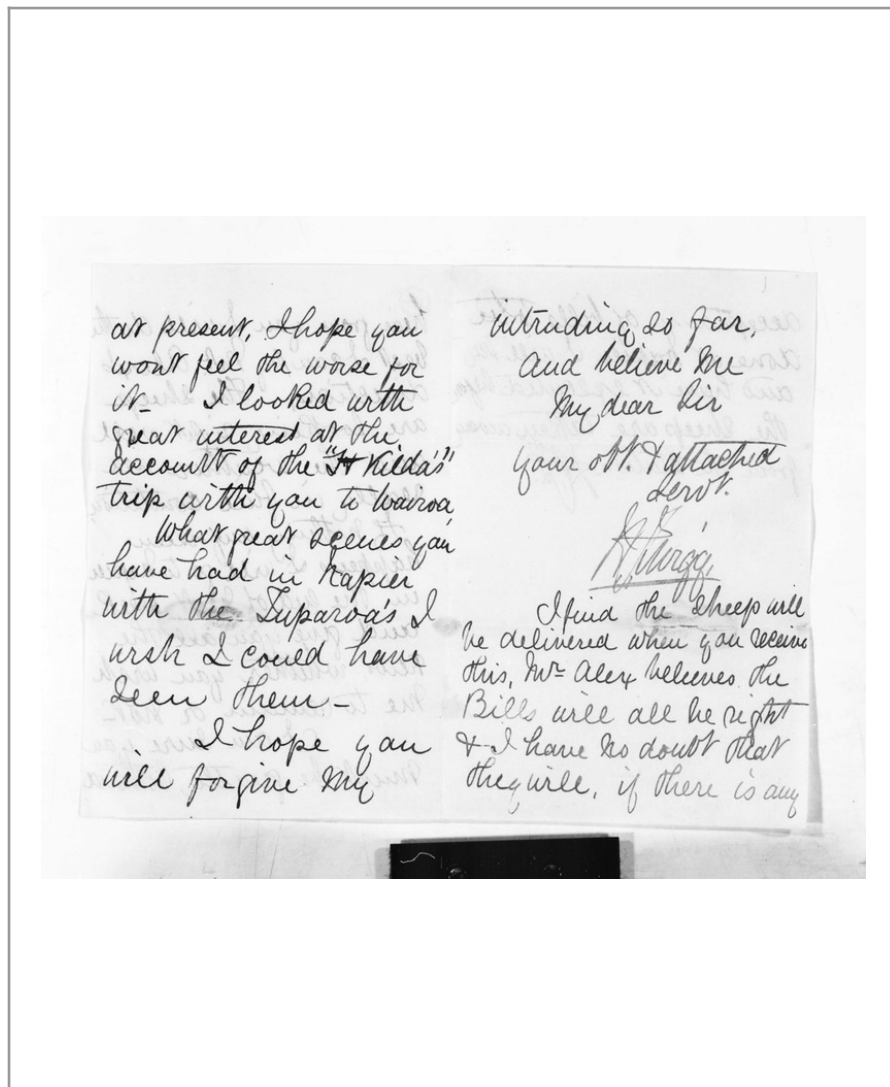 at present, I hope you
wont feel the worse for
it - I looked with
great interest at the
account of the "St Kilda's"
trip with you to Wairoa
What great scenes you
have had in Napier
with the Tuparoa's I
wish I could have
seen them -
I hope you
will forgive my
intruding so far,
and believe me
My dear Sir
your obt. & attached
Servt.
I find the sheep will
be delivered when you receive
this, Mr Alex believes the
Bills will all be right
& I have no doubt that
they will, if there is any